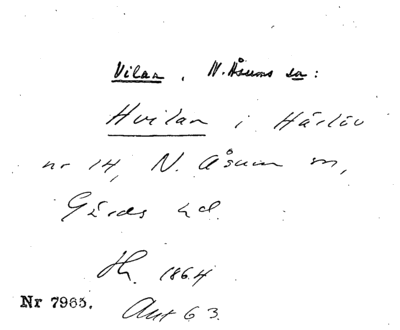 Vilan, N. Åsums sn:
Hvilan i Härlöv
nr 14, N. Åsum sn,
Gärds hd.
Hk. 1864
Nr 7965. Ant 63.